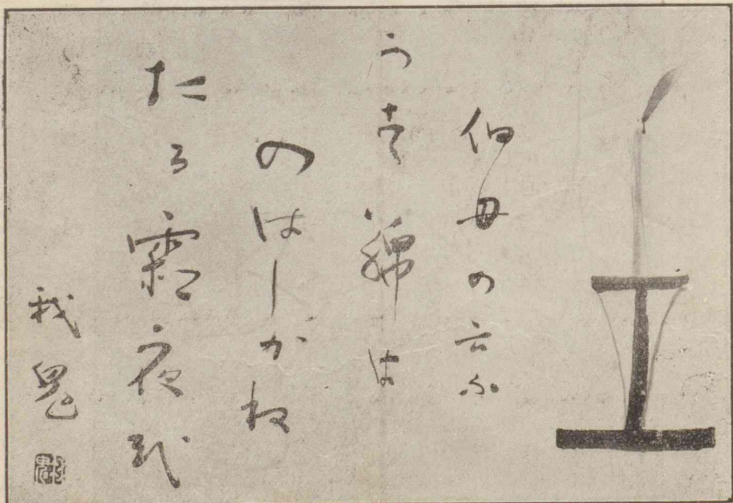 伯母の云ふ
うす綿は
のはしかね
たる霜夜哉
我鬼